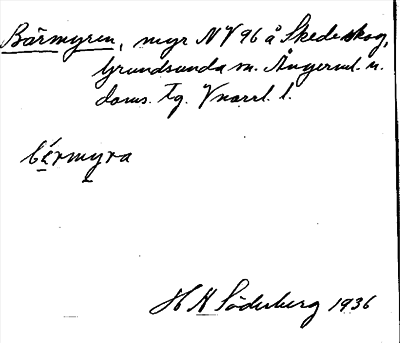 Bärmyren, myr NV 96 å Skedeskog,
Grundsunda sn. Ångerml. n.
doms. tg. Vnorrl. l.
bärmyra
H H Söderberg 1936